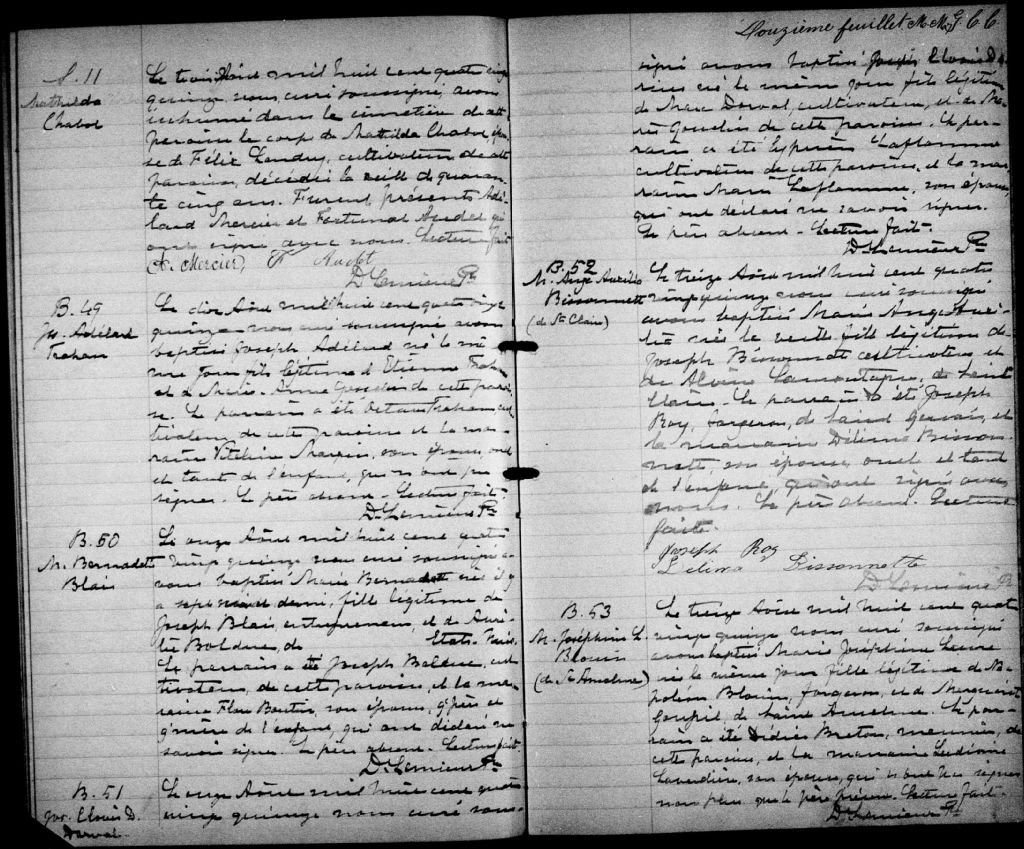 S. 11
Mathilda
Chabot
Le trois Août mil huit cent quatre vingt
quinze nous curé soussigné, avons
inhumé dans le cimetière de cette
paroisse le corps de Mathilda Chabot, épou-
se de Félix Landry, cultivateur de cette
paroisse, décédée la veille de quaran-
te cinq ans. Furent présents Adé-
lard Mercier et Fortunat Audet qui
ont signé avec nous. Lecture faite
A. Mercier, F Audet
D. Lemieux Ptr
B. 49
Js. Adélard
Trahan
Le dix Août mil huit cent quatre vingt
quinze nous curé soussigné avons
baptisé Joseph Adélard né le mê-
me jour fils légitime d'Etienne Trahan
et de Marie-Anne Gosselin de cette parois-
se. Le parrain a été Octave Trahan cul-
tivateur, de cette paroisse et la mar-
raine son épouse, oncle
et tante de l'enfant, qui n'ont pu
signer. Le père absent. Lecture faite.
D. Lemieux Ptr
B. 50
M. Bernadette
Blais
Le onze Août mil huit cent quatre
vingt quinze nous curé soussigné a-
vons baptisé Marie Bernadette née il y
a sept mois et demi, fille légitime de
Joseph Blais, entrepreneur, et de Auré-
lie Bolduc, de Etats-Unis.
Le parrain a été Joseph Bolduc, cul-
tivateur, de cette paroisse, et la mar-
raine Flore Boutin, son épouse, g'père et
g'mère de l'enfant, qui ont déclaré ne
savoir signer. Le père absent. Lecture faite.
D. Lemieux Ptr
B. 51
Jos. Clovis D.
Dorval
Le onze Août mil huit cent quatre
vingt quinze nous curé sous-
Douzième feuillet
signé avons baptisé Joseph Clovis Da-
rius né le même jour fils légitime
de Marc Dorval, cultivateur, et de Ma-
rie Gosselin de cette paroisse. Le par-
rain a été Cyprien Laflamme
cultivateur de cette paroisse, et la mar-
raine Marie Laflamme, son épouse,
qui ont déclaré ne savoir signer.
Le père absent. Lecture faite.
D. Lemieux Ptr
B. 52
M. Ange Aurélie
Bissonnette
(de St Clair)
Le treize Août mil huit cent quatre
vingt quinze nous curé soussigné
avons baptisé Marie Ange Auré-
lie née la veille fille légitime de
Joseph Bissonnette cultivateur et
de Alvine Lamontagne, de Saint
Claire. Le parrain a été Joseph
Roy, forgeron, de Saint Gervais, et
la marraine Délima Bisson-
nette, son épouse, oncle et tante
de l'enfant, qui ont signé avec
nous. Le père absent. Lecture
faite.
Joseph Roy
Délima Bissonnette
D. Lemieux Ptr
B. 53
M. Joséphine L.
Blouin
(de St Anselme)
Le treize Août mil huit cent quatre
vingt quinze nous curé soussigné
avons baptisé Marie Joséphine
née le même jour fille légitime de Na-
poléon Blouin, forgeron, et de Marguerite
Goupil, de Saint Anselme. Le par-
rain a été Didier Breton, meunier, de
cette paroisse, et la marraine
Laverdière, son épouse, qui n'ont pu signer
non plus que le père présent. Lecture faite.
D. Lemieux Ptr